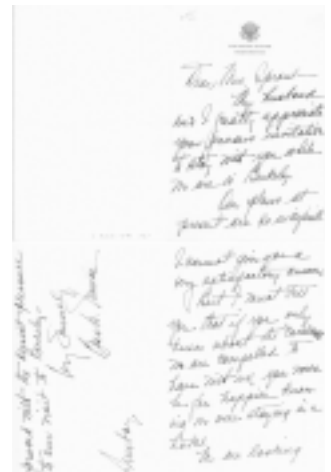 Dear Mrs. Sproul -
My husband
and I greatly appreciate
your generous invitation
to stay with you while
we are in Berkeley.
Our plans at
present are so
I cannot give you a
very satisfactory answer,
but I must tell
you that if you only
knew about the
we are compelled to
have with us, you would
be far happier knowing
we were staying in a
hotel.
We are looking
forward with the greatest pleasure
to our visit to Berkeley.
Very Sincerely